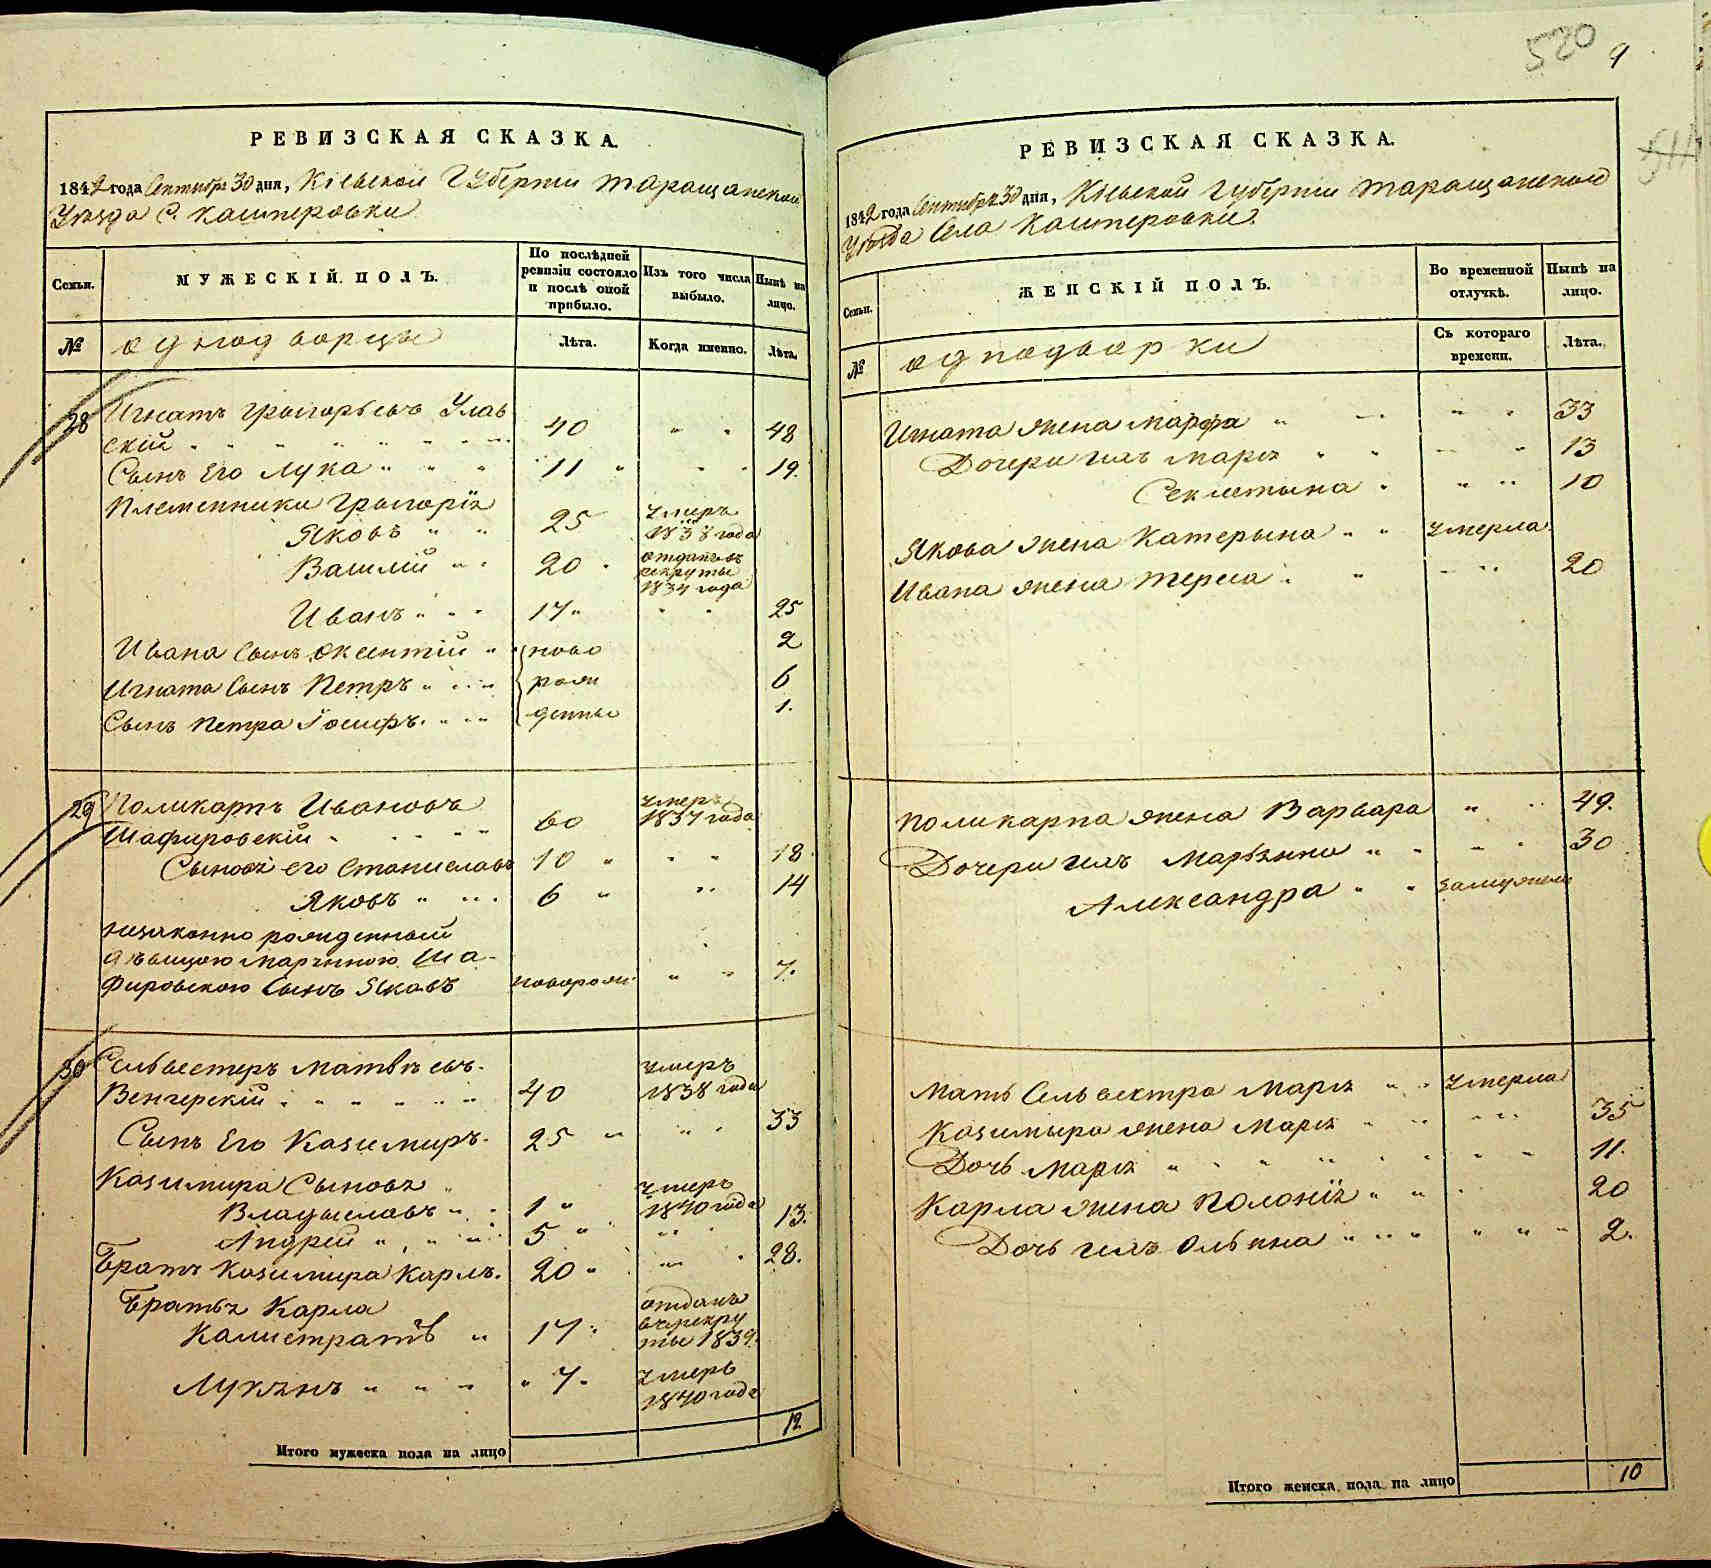 РЕВИЗСКАЯ СКАЗКА.
1842 года Сентября 30 дня, Кіевской Губерніи Таращанскаго
Уѣзда С. Каштеровки
Семьи.
МУЖЕСКІЙ ПОЛЪ.
По послѣдней
ревизіи состояло
и послѣ оной
прибыло.
Изъ того числа
выбыло.
Нынѣ на
лицо.
№
однодворцы
Лѣта.
Когда именно.
Лѣта.
28 Игнатъ Григорьевъ Улав
скій 40 48
Сынъ Его Лука 11 19.
Племенники Григорія
Яковъ 25 умеръ
1838 года
Василій 20 отданъ въ
рекруты
1834 года
Иванъ 17 25
Ивана Сынъ Оксентій ново 2
Игната Сынъ Петръ рож 6
Сынъ Петра Іосифъ. денные 1.
29 Поликарпъ Ивановъ
Шафировскій 60 умеръ
1837 года
Сыновя его Станиславъ 10 18.
Яковъ 6 14
незаконно рожденный
дѣвицою Марянною Ша-
фировскою Сынъ Яковъ новорож. 7.
30 Сельвестеръ Матвѣевъ.
Венгерскій 40 умеръ
1838 года
Сынъ Его Казимиръ. 25 33
Казимира Сыновя
Владыславъ 1 умеръ
1840 года
Андрей 5 13.
Братъ Казимира Карлъ. 20 28.
Братья Карла
Калистратъ 17 отданъ
въ рекру
ты 1839.
Лукянъ 7 умеръ
1840 года
Итого мужеска пола на лицо 12
520 9
РЕВИЗСКАЯ СКАЗКА.
1842 года Сентября 30 дня, Кіевской Губерніи Таращанскаго
Уѣзда Села Каштеровки.
Семьи.
ЖЕНСКІЙ ПОЛЪ.
Во временной
отлучкѣ.
Нынѣ на
лицо.
№
однодворки
Съ котораго
времени.
Лѣта.
Игната жена Марфа 33
Дочери ихъ Марія 13
Секлетына 10
Якова жена Катерына умерла
Ивана жена Тереса 20
Поликарпа жена Варвара 49.
Дочери ихъ Марянна 30
Александра замужем
Мать Сельвестра Марія умерла
Казимыра жена Марія 35
Дочь Марія 11.
Карла жена Полонія 20
Дочь ихъ Ольяна 2.
Итого женска пола на лицо 10